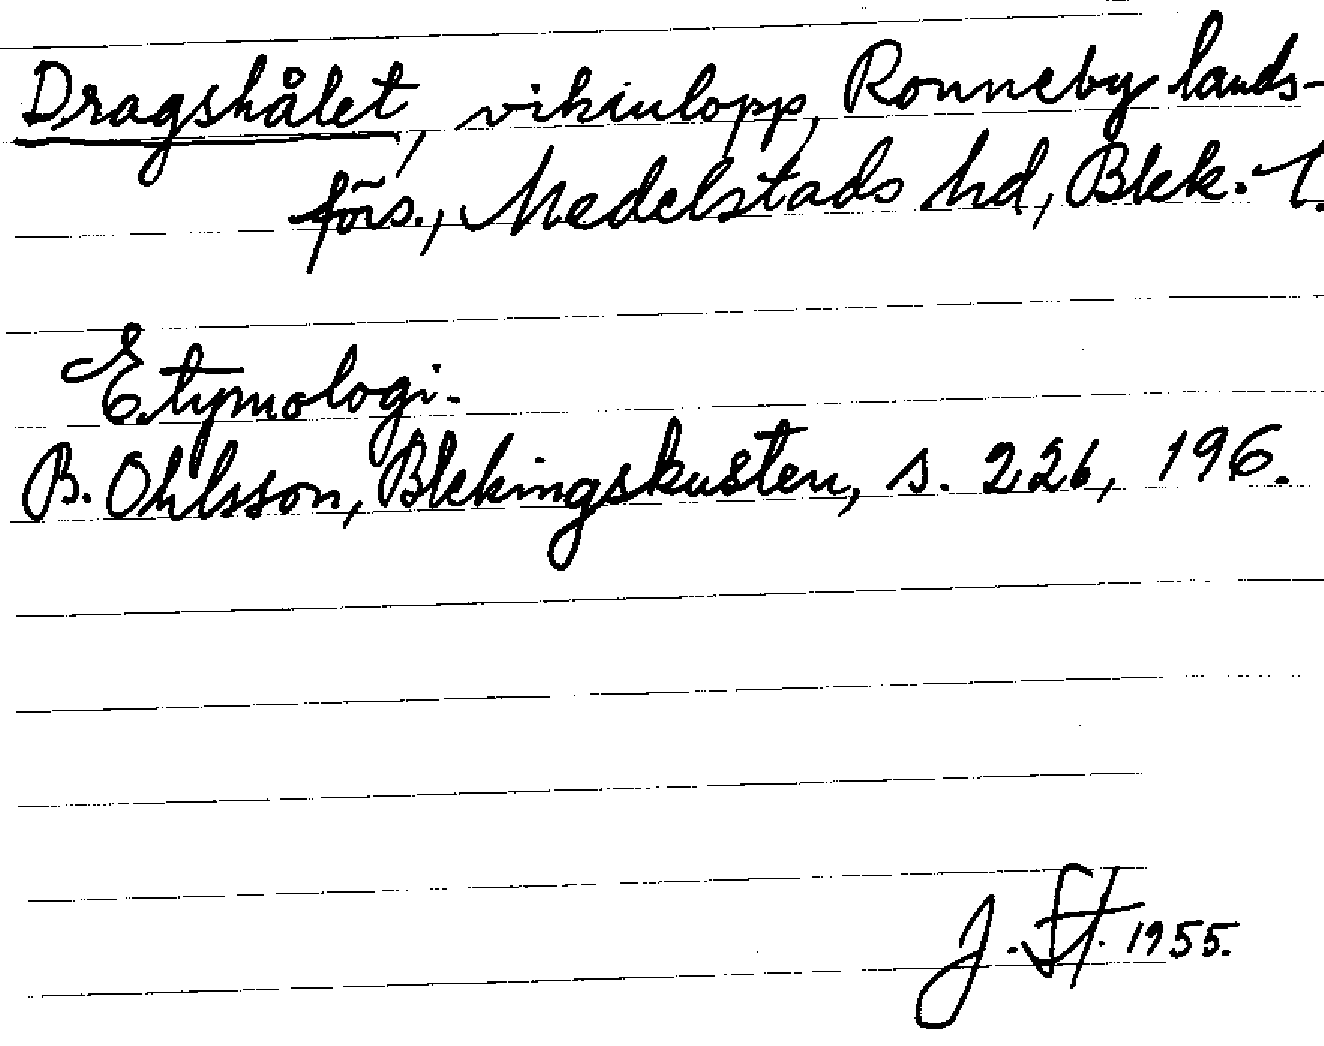 Dragshålet, vikinlopp, Ronneby lands-
förs., Medelstads hd, Blek. l.
Etymologi.
B. Ohlsson, Blekingskusten, s. 226, 196.
J. St. 1955.